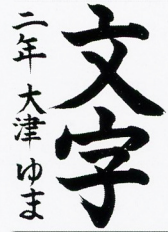 文字
二年 大津 ゆま